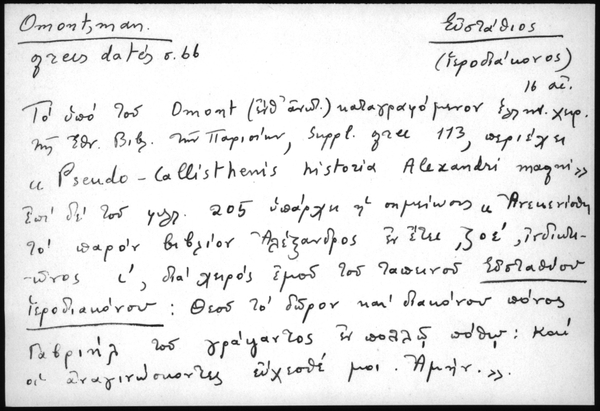 Omont, man. Εὐστάθιος
grecs datés σ. 66 (ἱεροδιάκονος)
16 αἰ.
Τό ὑπό τοῦ Omont (ἔνθ' ἀνωτ.) καταγραφόμενον ἑλλην. χειρ.
τῆς Ἐθν. Βιβλ. τῶν Παρισίων, Suppl. grec 113, περιέχει
« Pseudo-Callisthenis historia Alexandri magni »
Ἐπί δέ τοῦ φυλλ. 205 ὑπάρχει ἡ σημείωσις « Ἀνεκενίσθη
τό παρόν βιβλίον Ἀλέξανδρος ἐν ἔτει ,ζοέ, ἰνδικτι-
-ῶνος ί, διά χειρός ἐμοῦ τοῦ ταπεινοῦ Εὐσταθίου
ἱεροδιακόνου : Θεοῦ τό δῶρον καί διακόνου πόνος
Γαβριήλ τοῦ γράψαντος ἐν πολλῷ πόθῳ : Καί
οἱ ἀναγινώσκοντες εὔχεσθέ μοι. Ἀμήν. ».